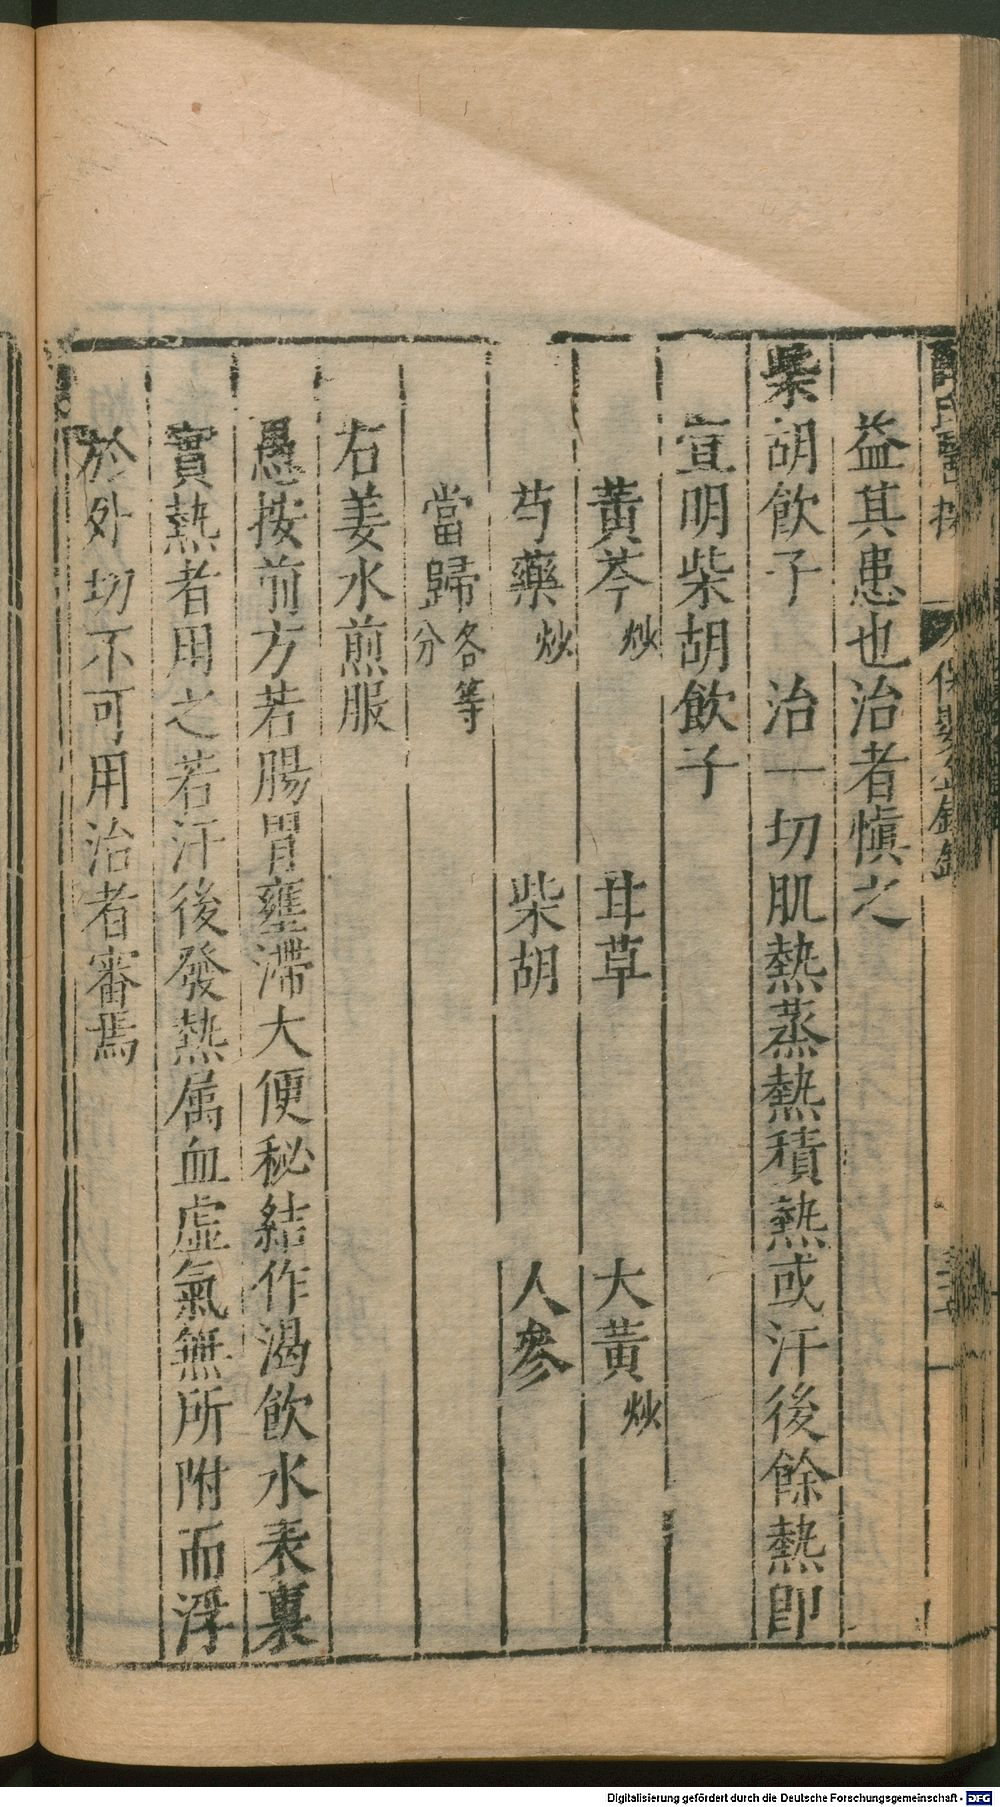 益其患也治者慎之
柴胡飲子 治一切肌熱蒸熱積熱或汗後餘熱即
宣明柴胡飲子
黃芩炒 甘草 大黃炒
芍藥炒 柴胡 人參
當歸各等分
右姜水煎服
愚按前方若腸胃壅滯大便秘結作渴飲水表裏
實熱者用之若汗後發熱属血虛氣無所附而浮
於外切不可用治者審焉
Digitalisierung gefördert durch die Deutsche Forschungsgemeinschaft - DFG